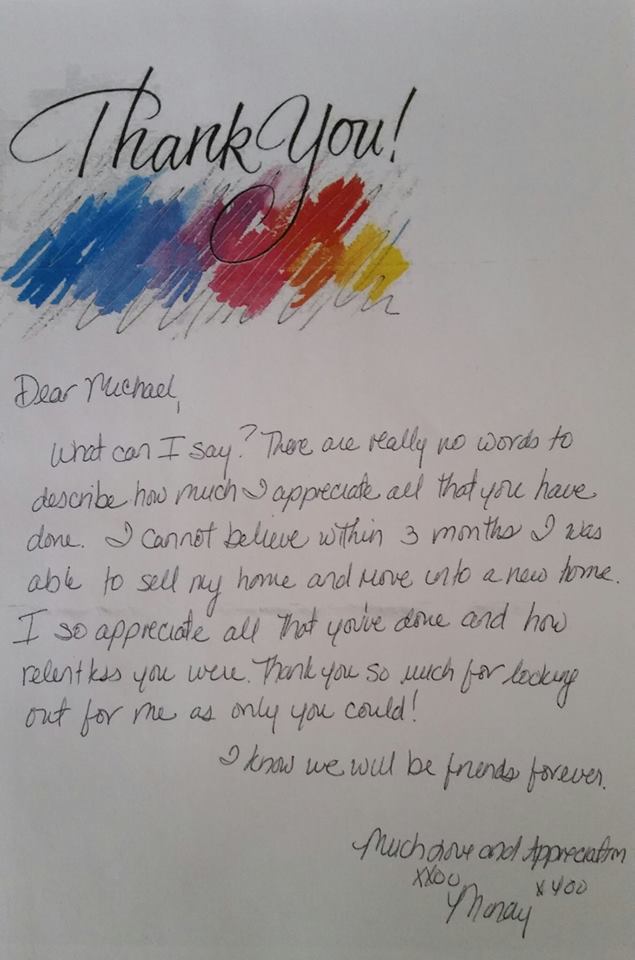 Thank You!
Dear Michael,
What can I say? There are really no words to
describe how much I appreciate all that you have
done. I cannot believe within 3 months I was
able to sell my home and move into a new home.
I so appreciate all that you've done and how
relentless you were. Thank you so much for looking
out for me as only you could!
I know we will be friends forever.
Much love and Appreciation
xxoo xxoo